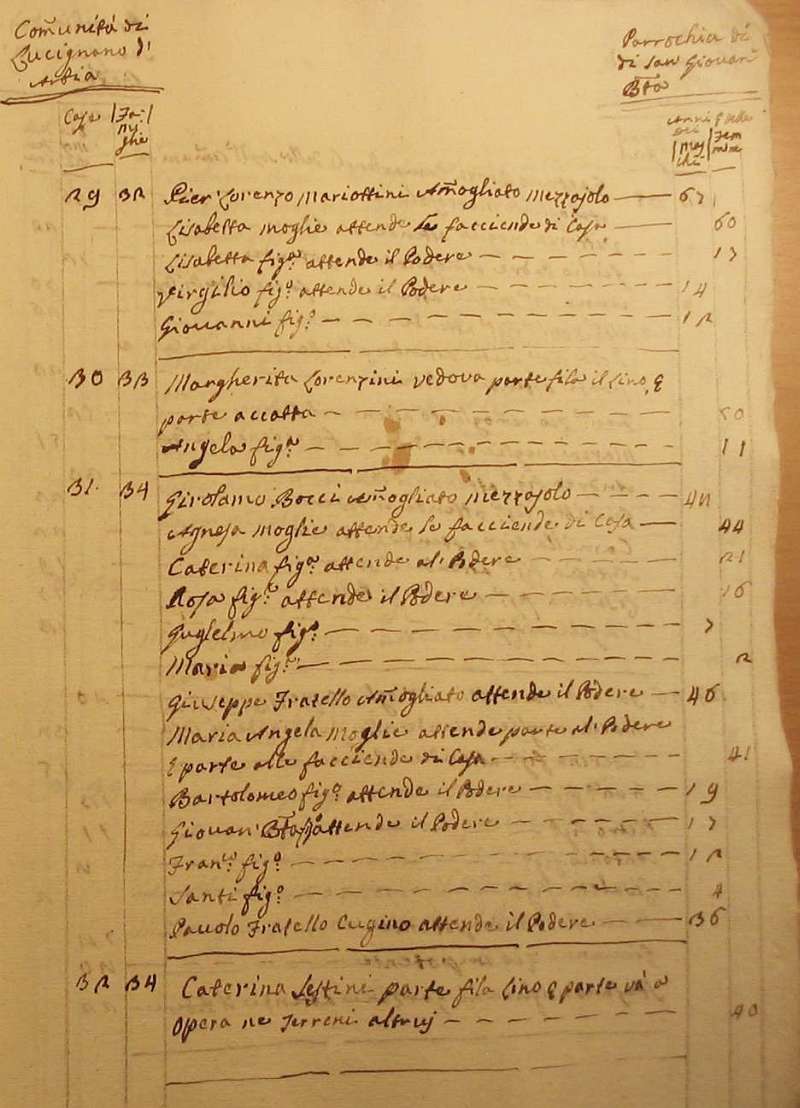 Comunità di
Lucignano d'
Asia
Parrochia di
di San Giovan
Bta
Case
Fa-
mi
glie
Anni
dei
Mas
chi
e delle
Fem
mine
29 32 Pier Lorenzo Mariottini Amogliato Mezzajolo 67
Lisabetta Moglie attende le facciende di Casa 60
Lisabetta figa attende il Podere 17
Virgilio figo attende il Podere 14
Giovanni figo 12
30 33 Margherita Lorenzini vedova parte fila il Lino, e
parte accatta 50
Angela figa 11
31. 34 Girolamo Bocci Amogliato Mezzajolo
Agnesa Moglie attende le facciende di Casa 44
Caterina figa attende al Podere 21
Rosa figa attende il Podere 16
Guglielmo figo 7
Maria figa 2
Giuseppe Fratello Amogliato attende il Podere 46
Maria Angela Moglie attende parte al Podere
e parte alle facciende di Casa 41
Bartolomeo figo attende il Podere 19
Giovan Bta figo attende il Podere 17
Franco figo 12
Santi figo 4
Pavolo Fratello Cugino attende il Podere 36
32 34 Caterina Sestini parte fila Lino e parte và a
Opera ne Terreni altruj 40